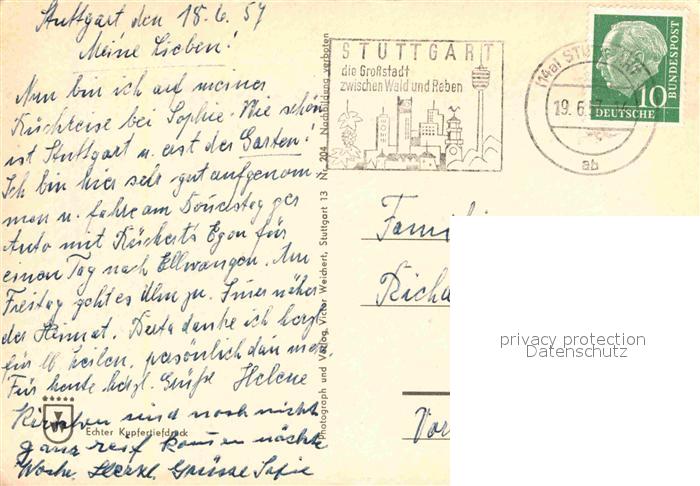 Stuttgart den 18.6.57
Meine Lieben!
Nun bin ich auf meiner
Rückreise bei Sophie. Wie schön
ist Stuttgart u. erst der Garten!
Ich bin hier sehr gut aufgenom-
men u. fahre am Donnerstag per
Auto mit Rückert's Egon für
einen Tag nach Ellwangen. Am
Freitag geht es Ulm zu. Immer näher
der Heimat. Berta danke ich herzl.
für lb. Zeilen, persönlich dann mehr
Für heute herzl. Grüße Helene
Kirschen sind noch nicht
ganz reif kommen nächste
Woche. Herzl. Grüsse Sofie
Echter Kupfertiefdruck
Photograph und Verlag Victor Weichert, Stuttgart 13 Nr. 204 Nachbildung verboten
STUTTGART
die Großstadt
zwischen Wald und Reben
(14a) STUTTGART
19.6.57
ab
DEUTSCHE
BUNDESPOST
10
Familie
privacy protection
Datenschutz